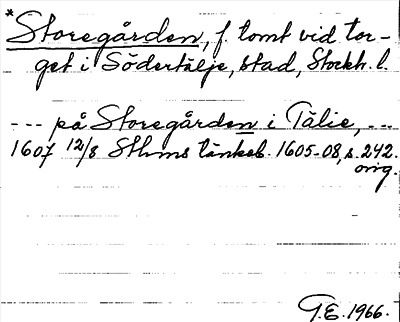 * Storegården, f. tomt vid tor-
get i Södertälje, stad, Stockh. l.
--- på Storegården i Tälie, ---
1607 12/8 Sthms tänkeb. 1605-08, s. 242.
orig.
G.E. 1966.